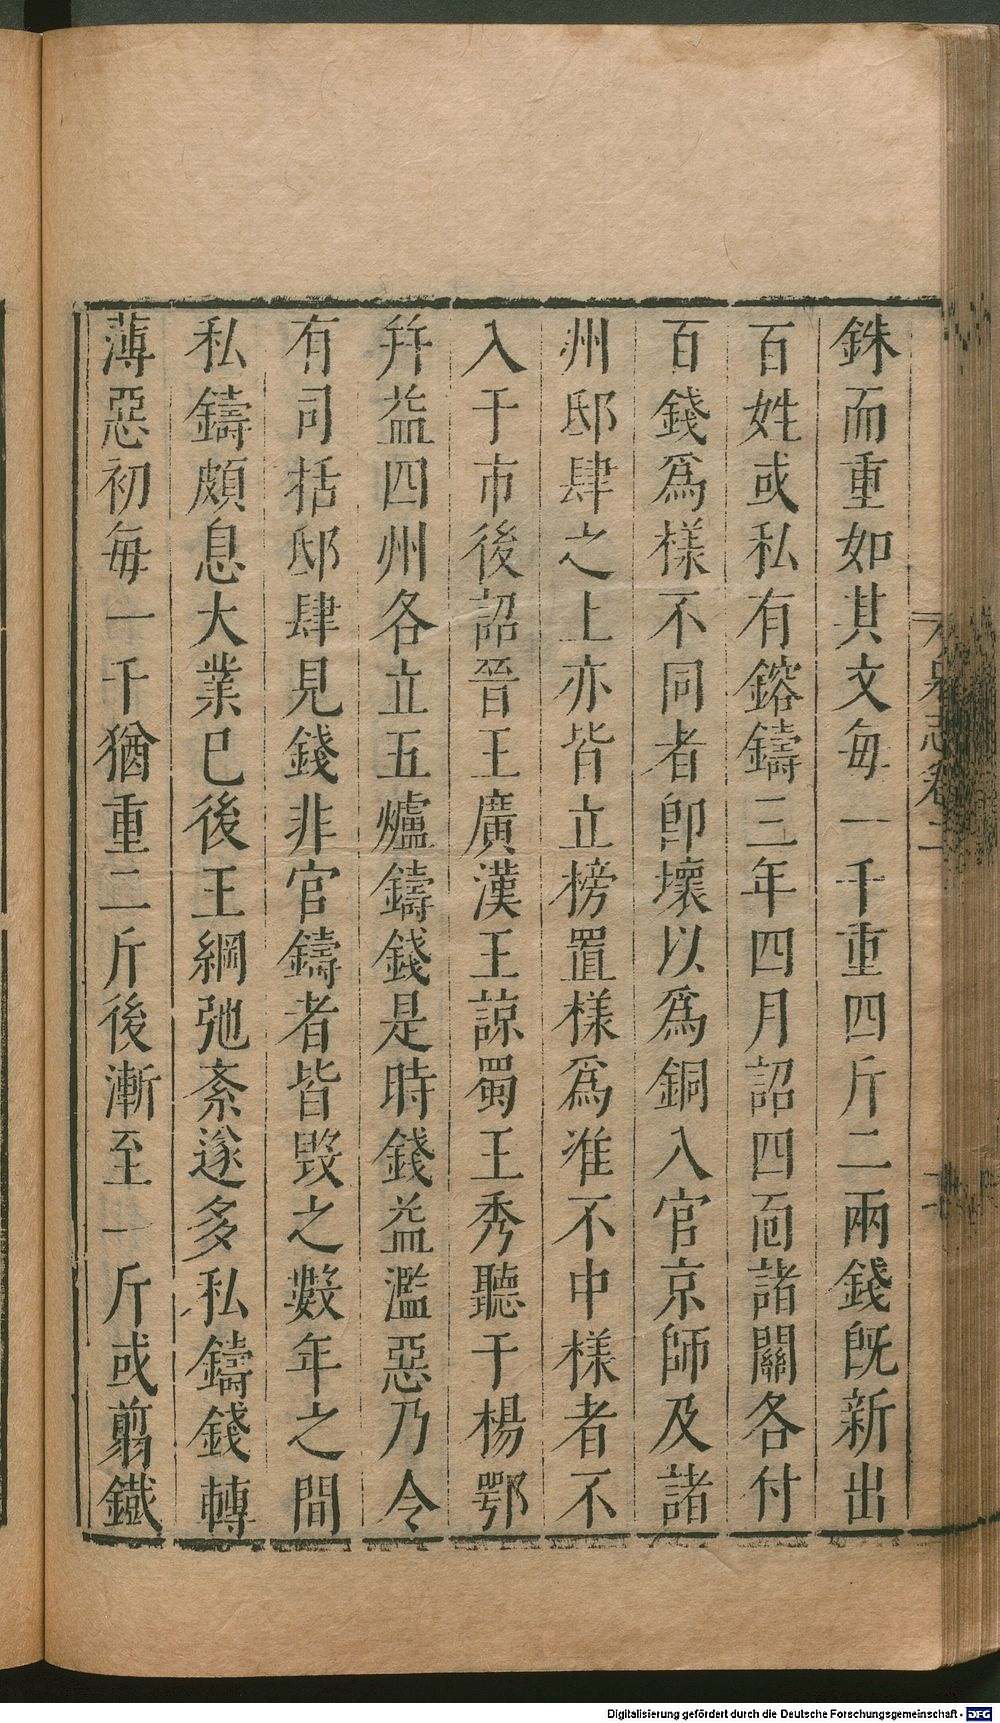 銖而重如其文每一千重四斤二兩錢旣新出
百姓或私有鎔鑄三年四月詔四面諸關各付
百錢爲樣不同者卽壞以爲銅入官京師及諸
州邸肆之上亦皆立榜置樣爲准不中樣者不
入于市後詔晉王廣漢王諒蜀王秀聽于楊鄂
幷益四州各立五爐鑄錢是時錢益濫惡乃令
有司括邸肆見錢非官鑄者皆毀之數年之間
私鑄頗息大業已後王綱弛紊遂多私鑄錢轉
薄惡初每一千猶重二斤後漸至一斤或翦鐵
Digitalisierung gefördert durch die Deutsche Forschungsgemeinschaft - DFG